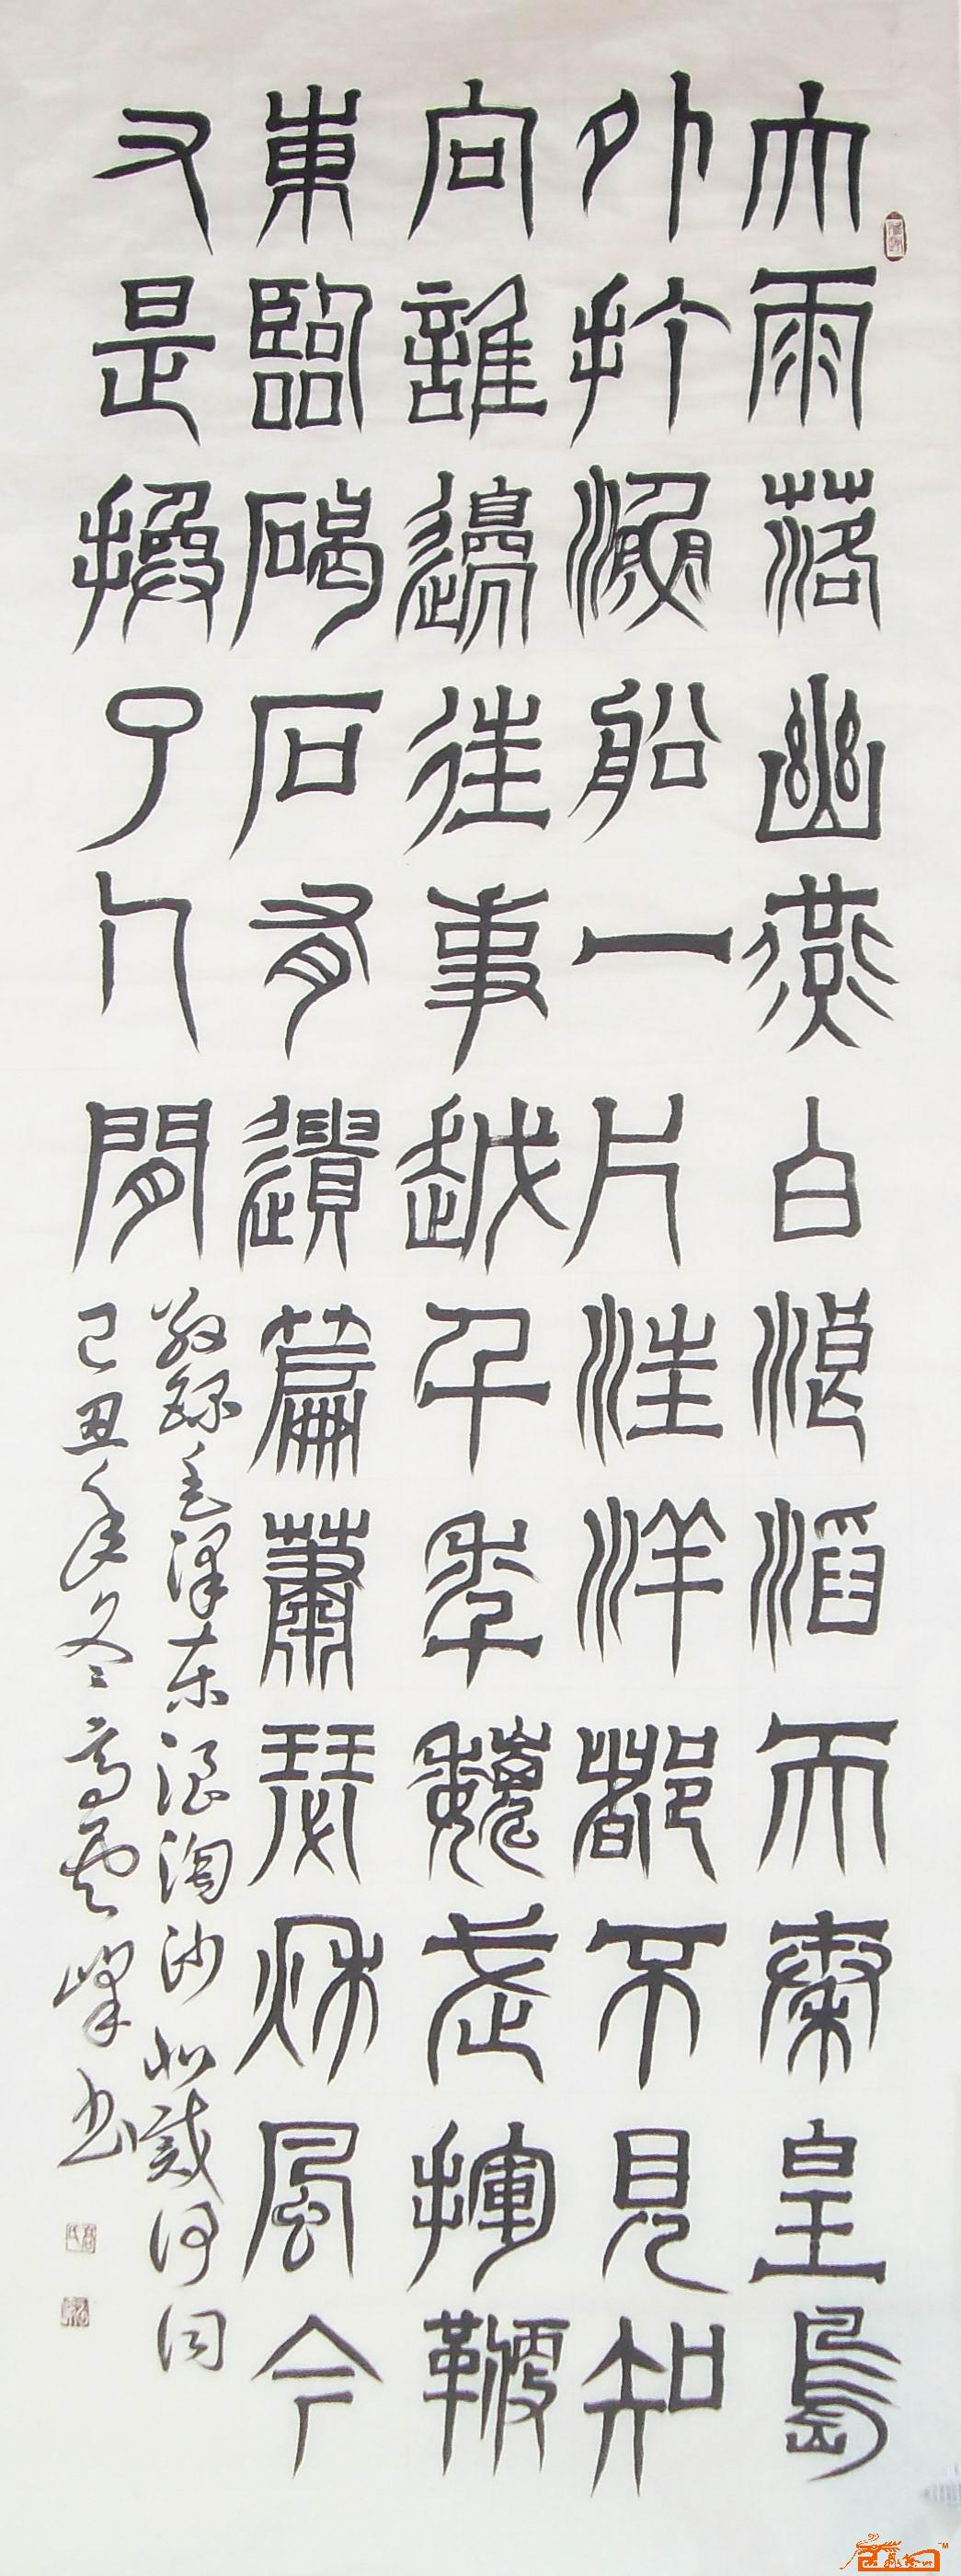 大雨落幽燕白浪滔天秦皇島
外打漁船一片汪洋都不見知
向誰邊往事越千年魏武揮鞭
東臨碣石有遺篇蕭瑟秋風今
又是換了人間
敬錄毛澤东浪淘沙北戴河词
己丑年冬高雲峰书